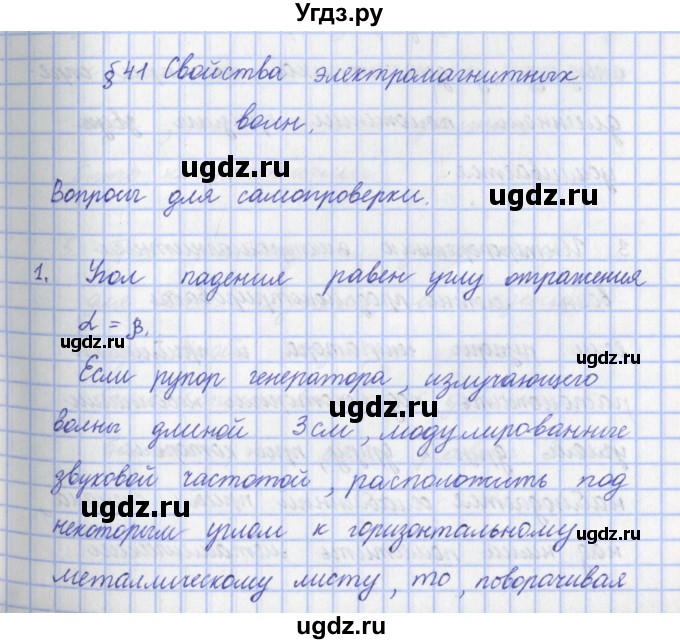 Угдз.ру
§41 Свойства электромагнитных
волн.
ugdz.ru
ugdz.ru
Вопросы для самопроверки.
1. Угол падения равен углу отражения
α = β.
ugdz.ru
ugdz.ru
Если рупор генератора, излучающего
ugdz.ru
волны длиной 3см, модулированные
звуковой частотой, расположить под
некоторым углом к горизонтальному
ugdz.ru
ugdz.ru
металлическому листу, то, поворачивая
ugdz.ru